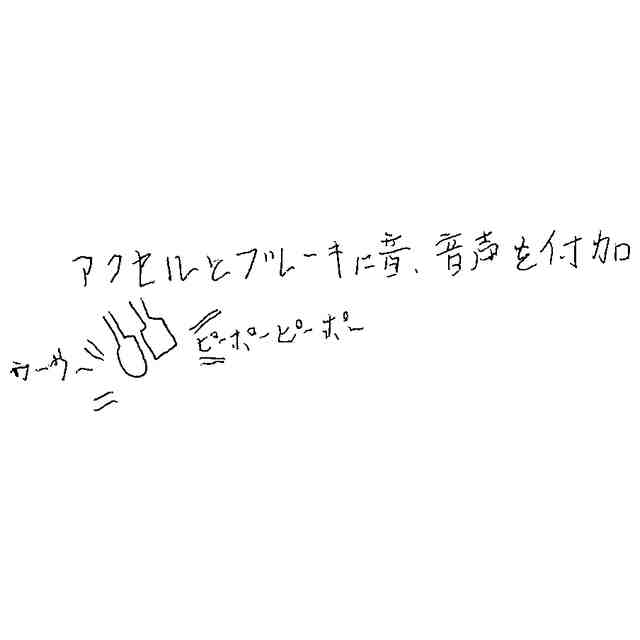 アクセルとブレーキに音、音声を付加
ウーウー
ピーポーピーポー